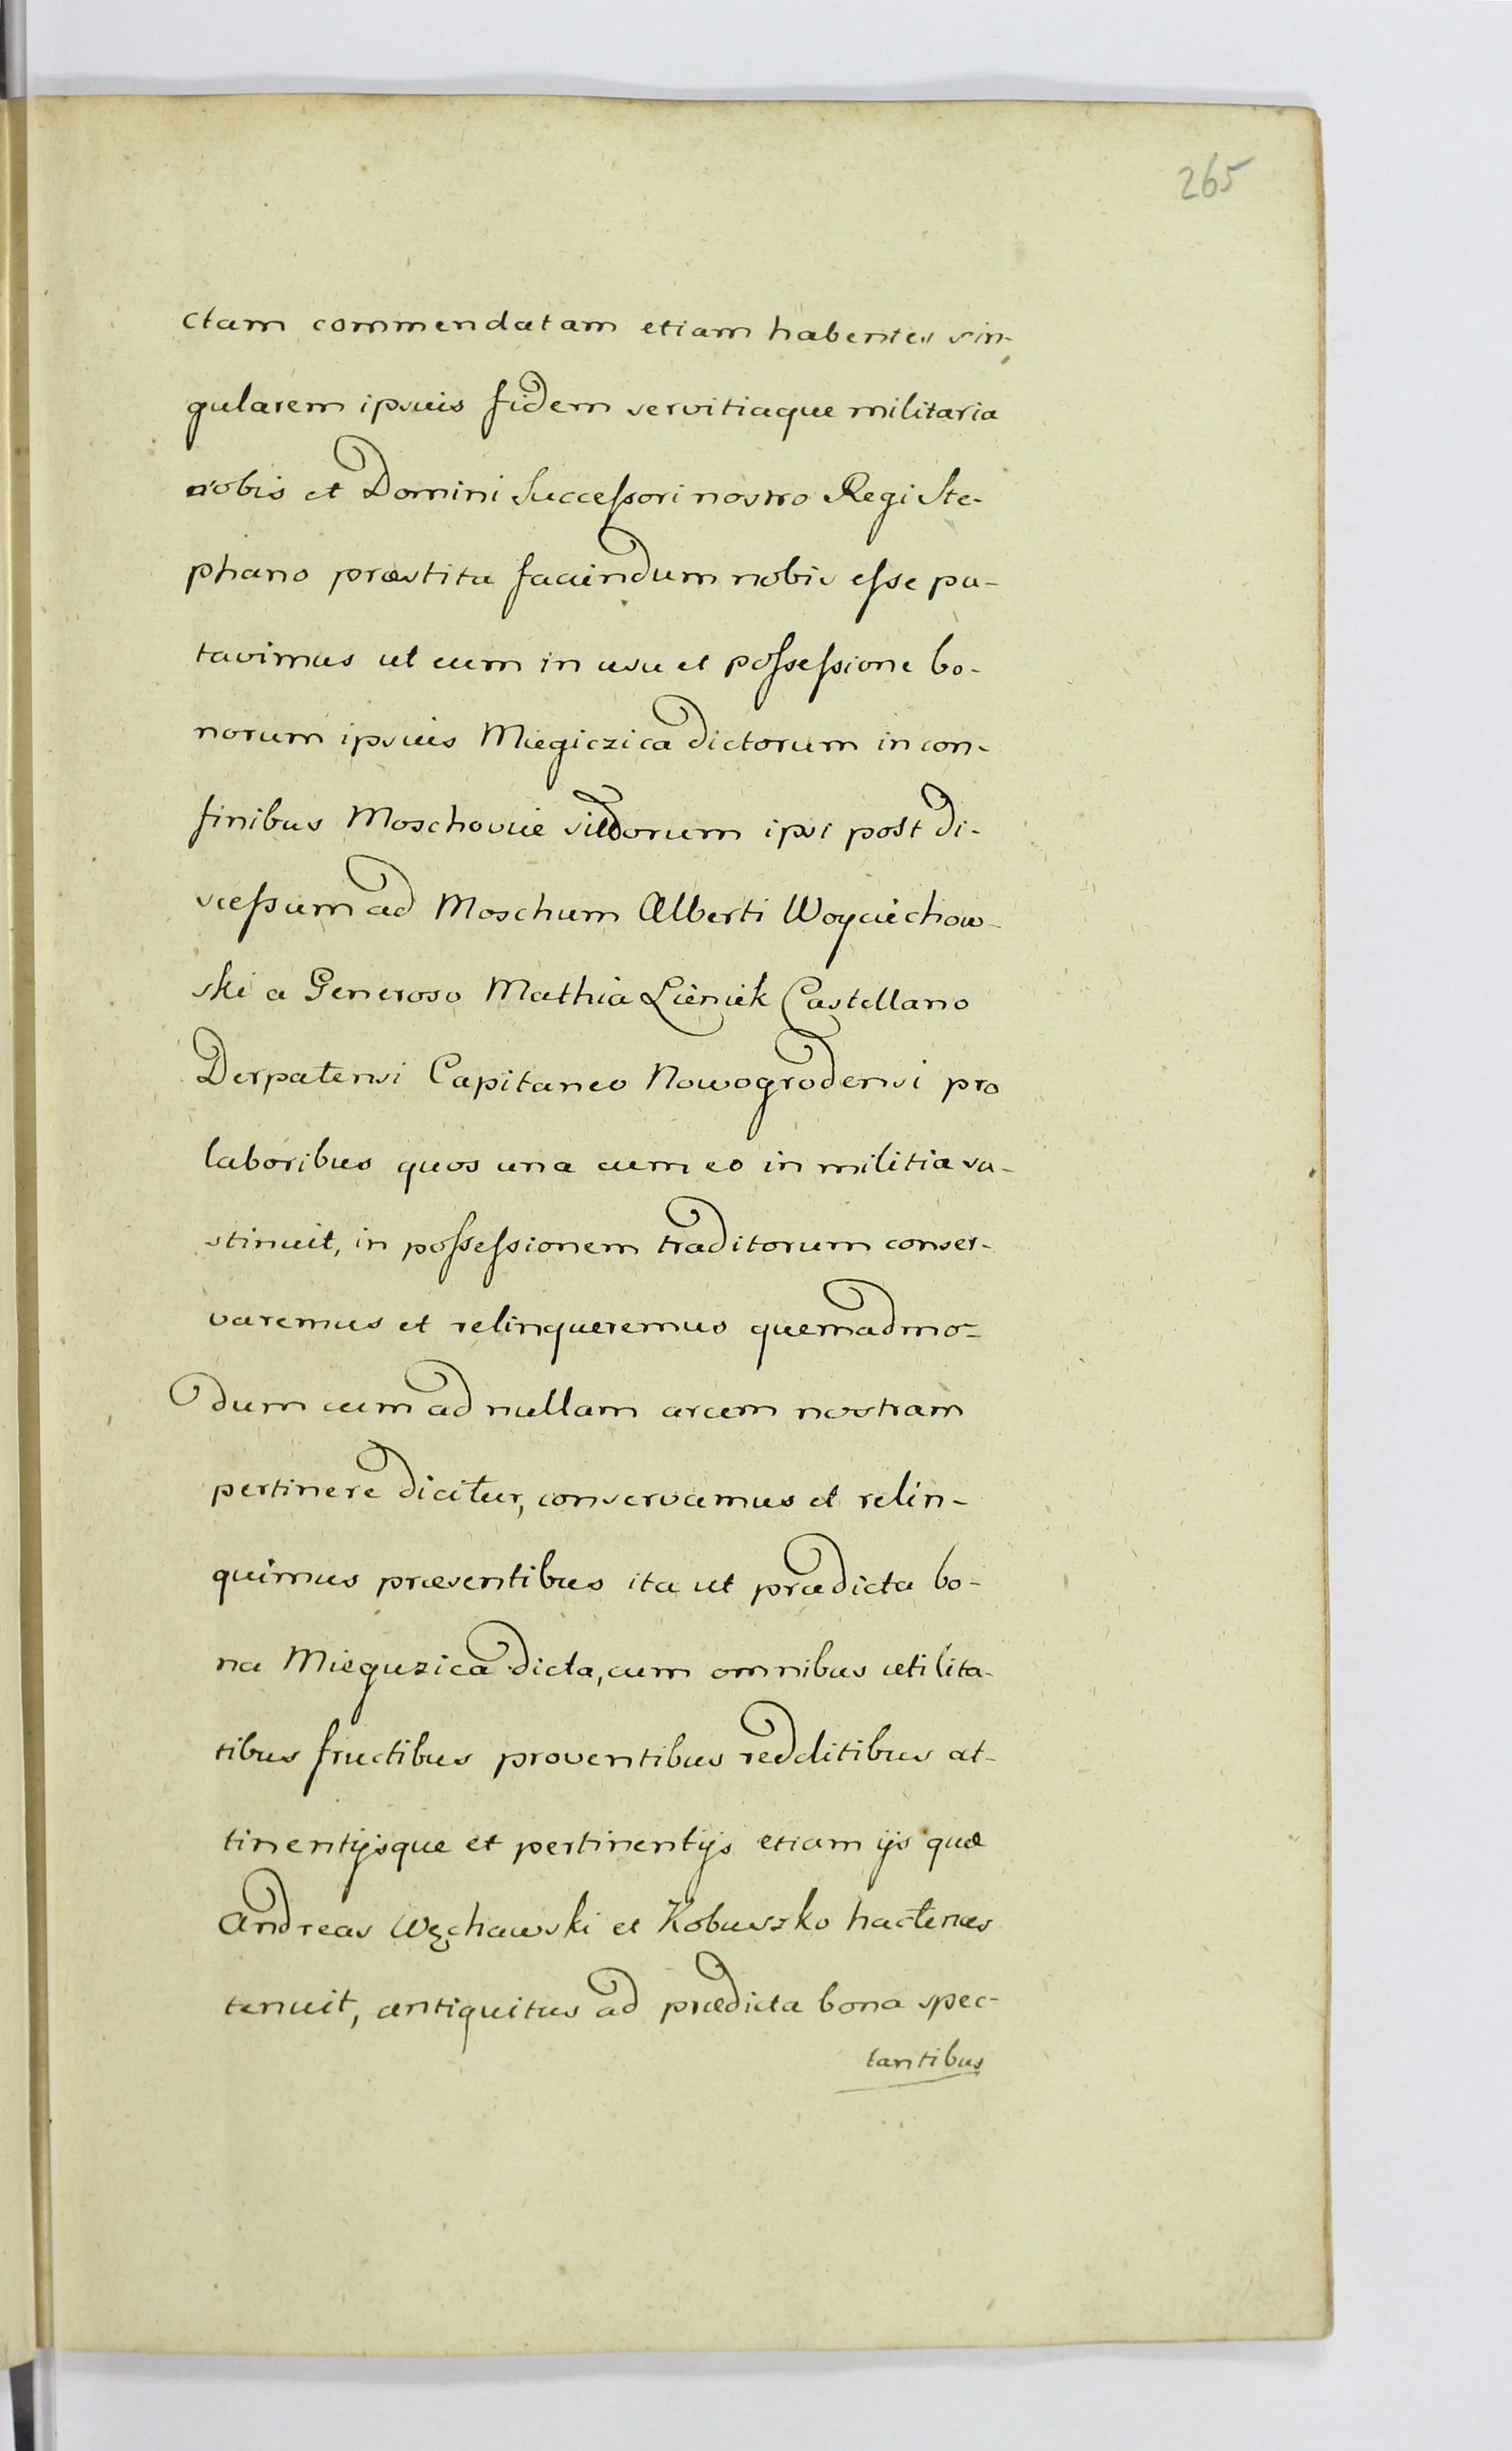 265
ctam commendatam etiam habentes sin-
gularem ipsuis fidem servitiaque militaria
nobis et Domini Successori nostro Regi Ste-
phano præstita faciendum nobis esse pu-
tavimus ut eum in usu et possessione bo-
norum ipsuis Miegiczica dictorum in con-
finibus Moschoviæ sitorum ipsi post di-
scessum ad Moschum Alberti Woyciechow-
ski a Generoso Mathia Lieniek Castellano
Derpatensi Capitaneo Nowogrodensi pro
laboribus quos una cum eo in militia su-
stinuit, in possessionem traditorum conser-
varemus et relinqueremus quemadmo-
dum eum ad nullam arcem nostram
pertinere dicitur, conservamus et relin-
quimus præsentibus ita ut prædicta bo-
na Mieguzica dicta, cum omnibus utilita-
tibus fructibus proventibus redditibus at-
tinentijsque et pertinentijs etiam ijs quæ
Andreas Węchawski et Kobuszko hactenus
tenuit, antiquitus ad prædicta bona spec-
tantibus